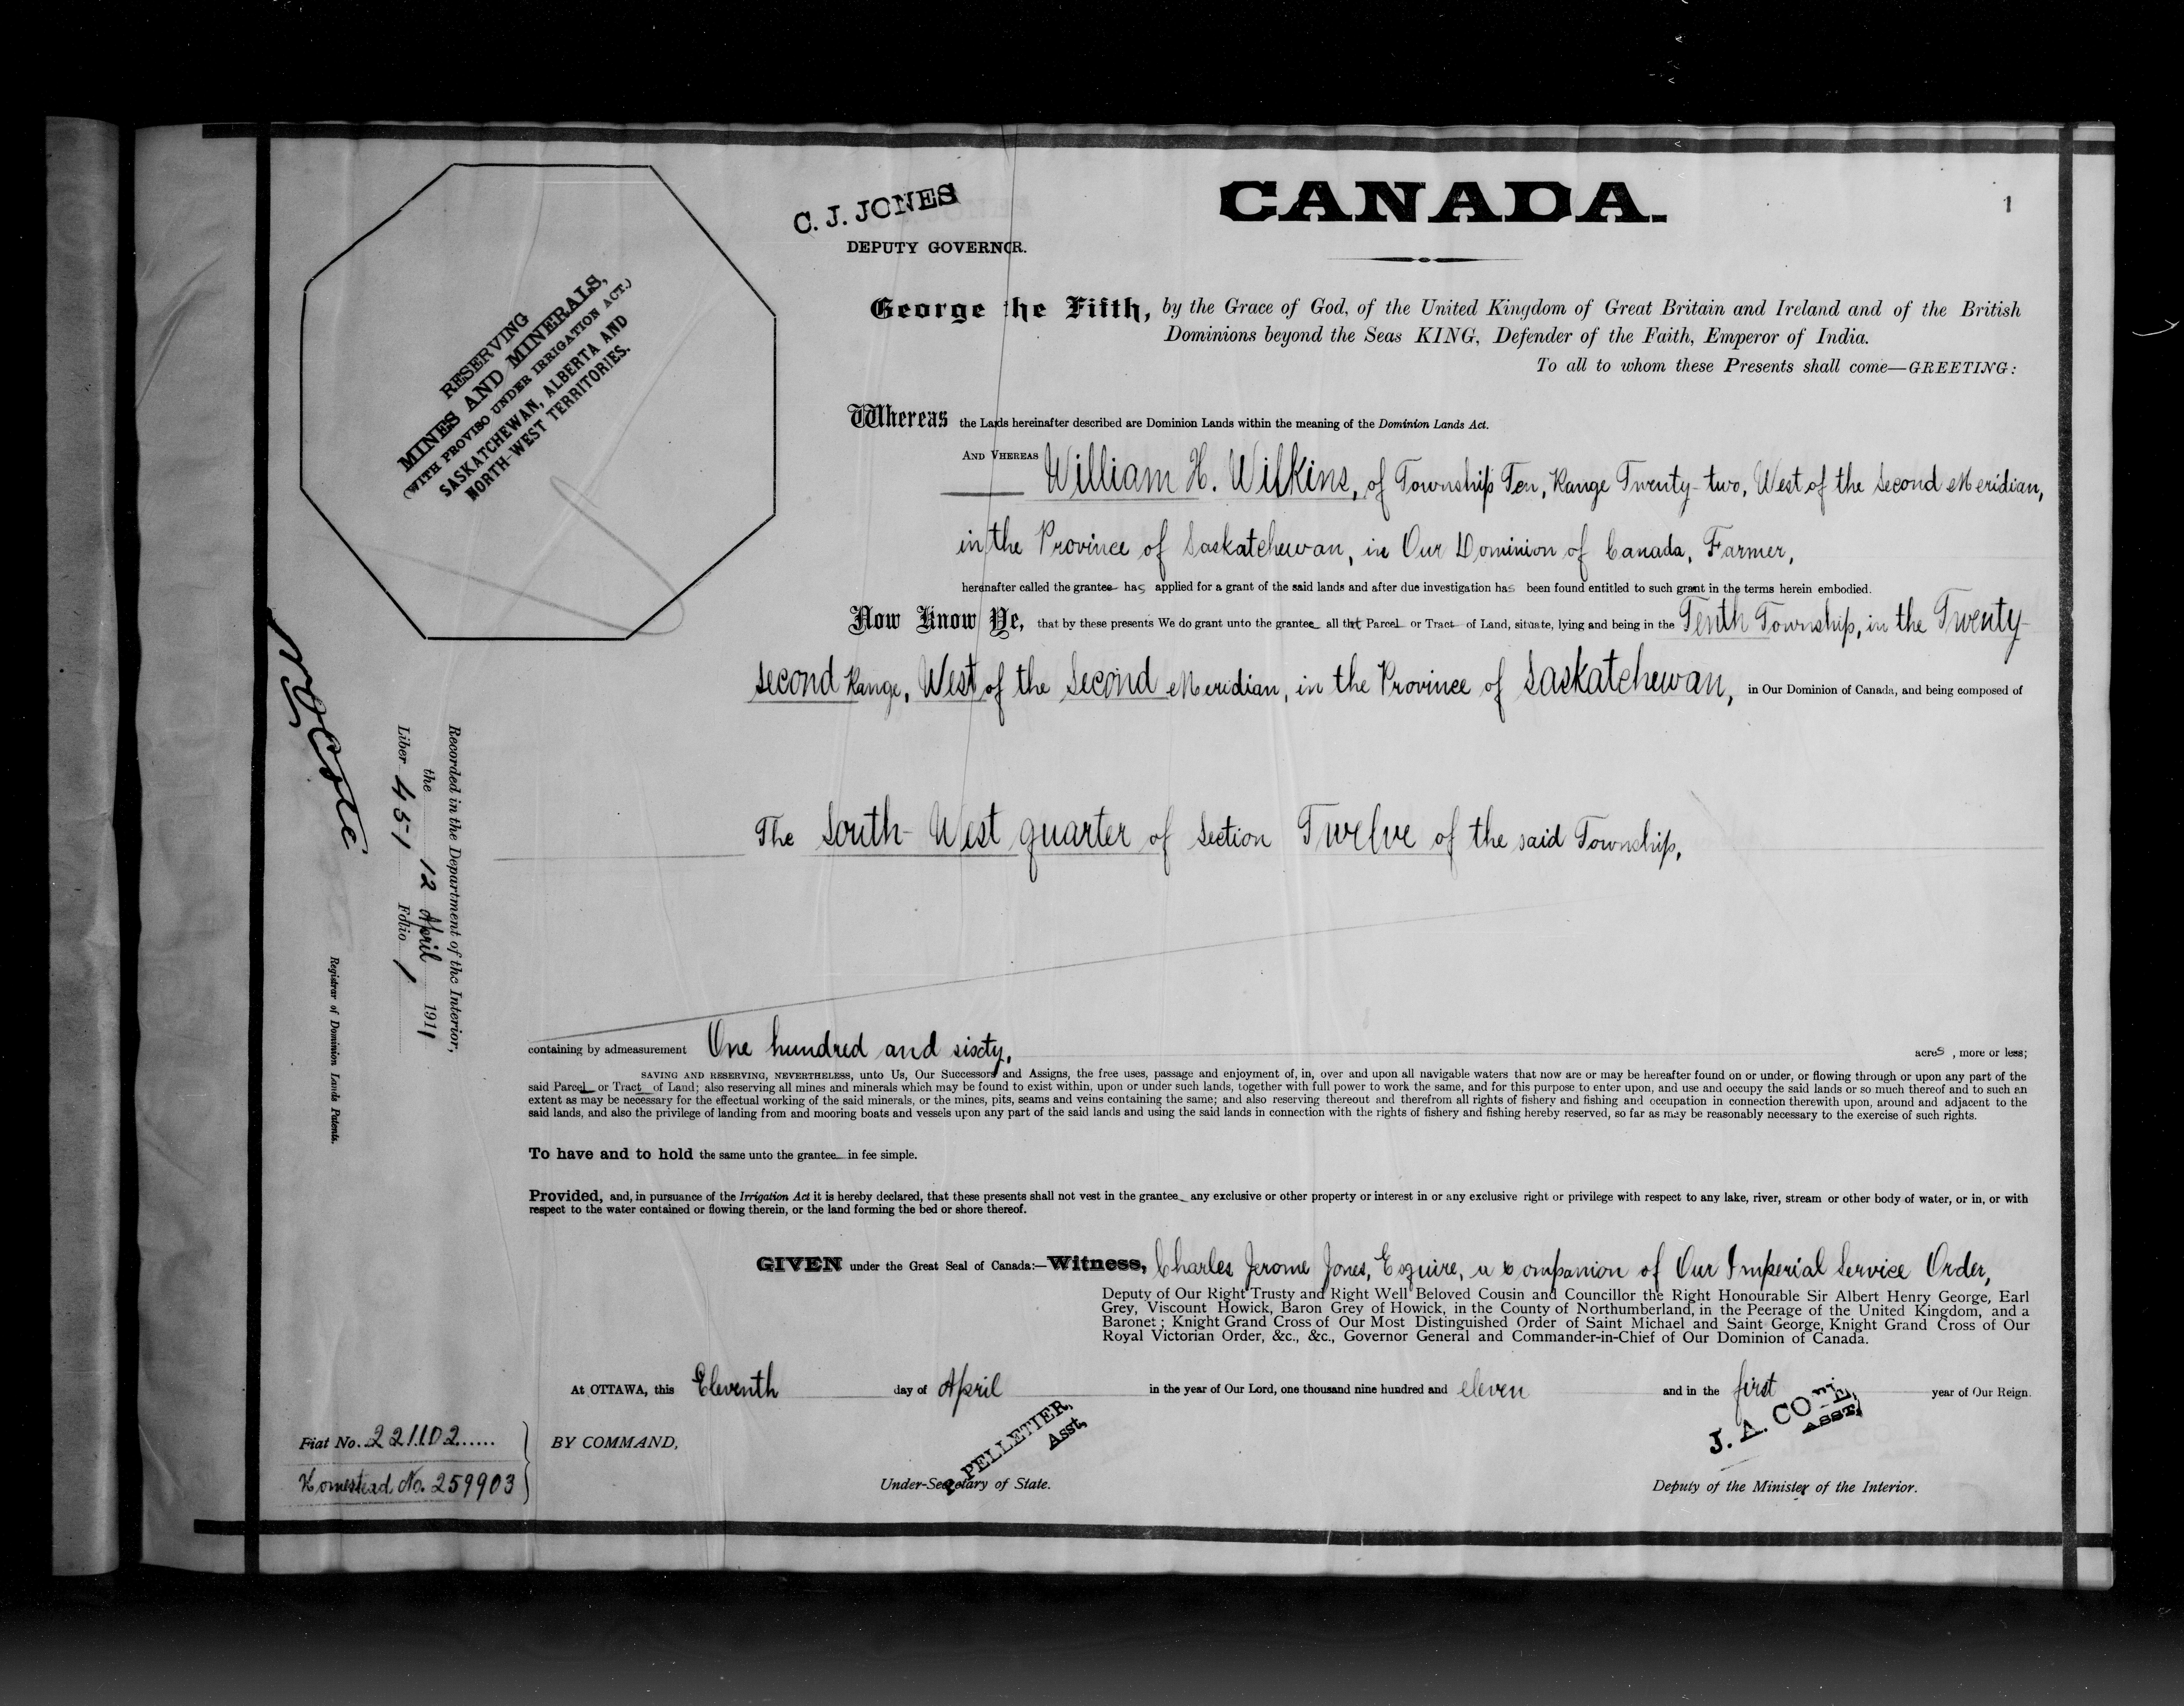 CANADA.
1
C. J. JONES
DEPUTY GOVERNOR.
RESERVING
MINES AND MINERALS,
(WITH PROVISO UNDER IRRIGATION ACT.)
SASKATCHEWAN, ALBERTA AND
NORTH-WEST TERRITORIES.
George the Fifth, by the Grace of God, of the United Kingdom of Great Britain and Ireland and of the British
Dominions beyond the Seas KING, Defender of the Faith, Emperor of India.
To all to whom these Presents shall come—GREETING:
Whereas the Lands hereinafter described are Dominion Lands within the meaning of the Dominion Lands Act.
AND WHEREAS William H. Wilkins, of Township Ten, Range Twenty-two, West of the Second Meridian,
in the Province of Saskatchewan, in Our Dominion of Canada, Farmer,
hereinafter called the grantee has applied for a grant of the said lands and after due investigation has been found entitled to such grant in the terms herein embodied.
Now Know Ye, that by these presents We do grant unto the grantee all that Parcel or Tract of Land, situate, lying and being in the Tenth Township, in the Twenty-
second Range, West of the Second Meridian, in the Province of Saskatchewan, in Our Dominion of Canada, and being composed of
The South-West quarter of Section Twelve of the said Township,
Recorded in the Department of the Interior,
the 12 April 1911
Liber 451 Folio 1
Registrar of Dominion Lands Patents.
containing by admeasurement One hundred and sixty, acres, more or less;
SAVING AND RESERVING, NEVERTHELESS, unto Us, Our Successors and Assigns, the free uses, passage and enjoyment of, in, over and upon all navigable waters that now are or may be hereafter found on or under, or flowing through or upon any part of the
said Parcel or Tract of Land; also reserving all mines and minerals which may be found to exist within, upon or under such lands, together with full power to work the same, and for this purpose to enter upon, and use and occupy the said lands or so much thereof and to such an
extent as may be necessary for the effectual working of the said minerals, or the mines, pits, seams and veins containing the same; and also reserving thereout and therefrom all rights of fishery and fishing and occupation in connection therewith upon, around and adjacent to the
said lands, and also the privilege of landing from and mooring boats and vessels upon any part of the said lands and using the said lands in connection with the rights of fishery and fishing hereby reserved, so far as may be reasonably necessary to the exercise of such rights.
To have and to hold the same unto the grantee in fee simple.
Provided, and, in pursuance of the Irrigation Act it is hereby declared, that these presents shall not vest in the grantee any exclusive or other property or interest in or any exclusive right or privilege with respect to any lake, river, stream or other body of water, or in, or with
respect to the water contained or flowing therein, or the land forming the bed or shore thereof.
GIVEN under the Great Seal of Canada:—Witness, Charles Jerome Jones, Esquire, a Companion of Our Imperial Service Order,
Deputy of Our Right Trusty and Right Well Beloved Cousin and Councillor the Right Honourable Sir Albert Henry George, Earl
Grey, Viscount Howick, Baron Grey of Howick, in the County of Northumberland, in the Peerage of the United Kingdom, and a
Baronet; Knight Grand Cross of Our Most Distinguished Order of Saint Michael and Saint George, Knight Grand Cross of Our
Royal Victorian Order, &c., &c., Governor General and Commander-in-Chief of Our Dominion of Canada.
At OTTAWA, this Eleventh day of April in the year of Our Lord, one thousand nine hundred and eleven and in the first year of Our Reign.
Fiat No. 221102.....
Homestead No. 259903
BY COMMAND,
PELLETIER,
Asst,
Under-Secretary of State.
J. A. COTE,
ASST,
Deputy of the Minister of the Interior.